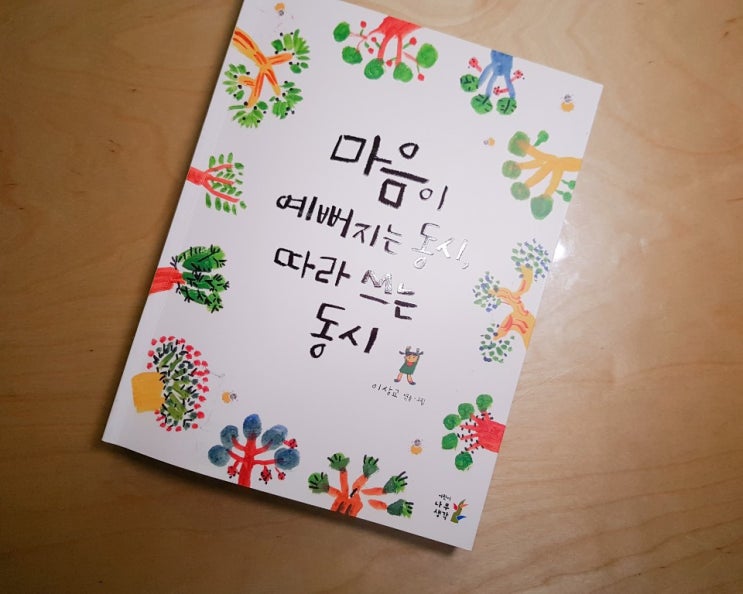 마음이
예뻐지는 동시,
따라 쓰는
동시
이상교
어린이
나무
생각